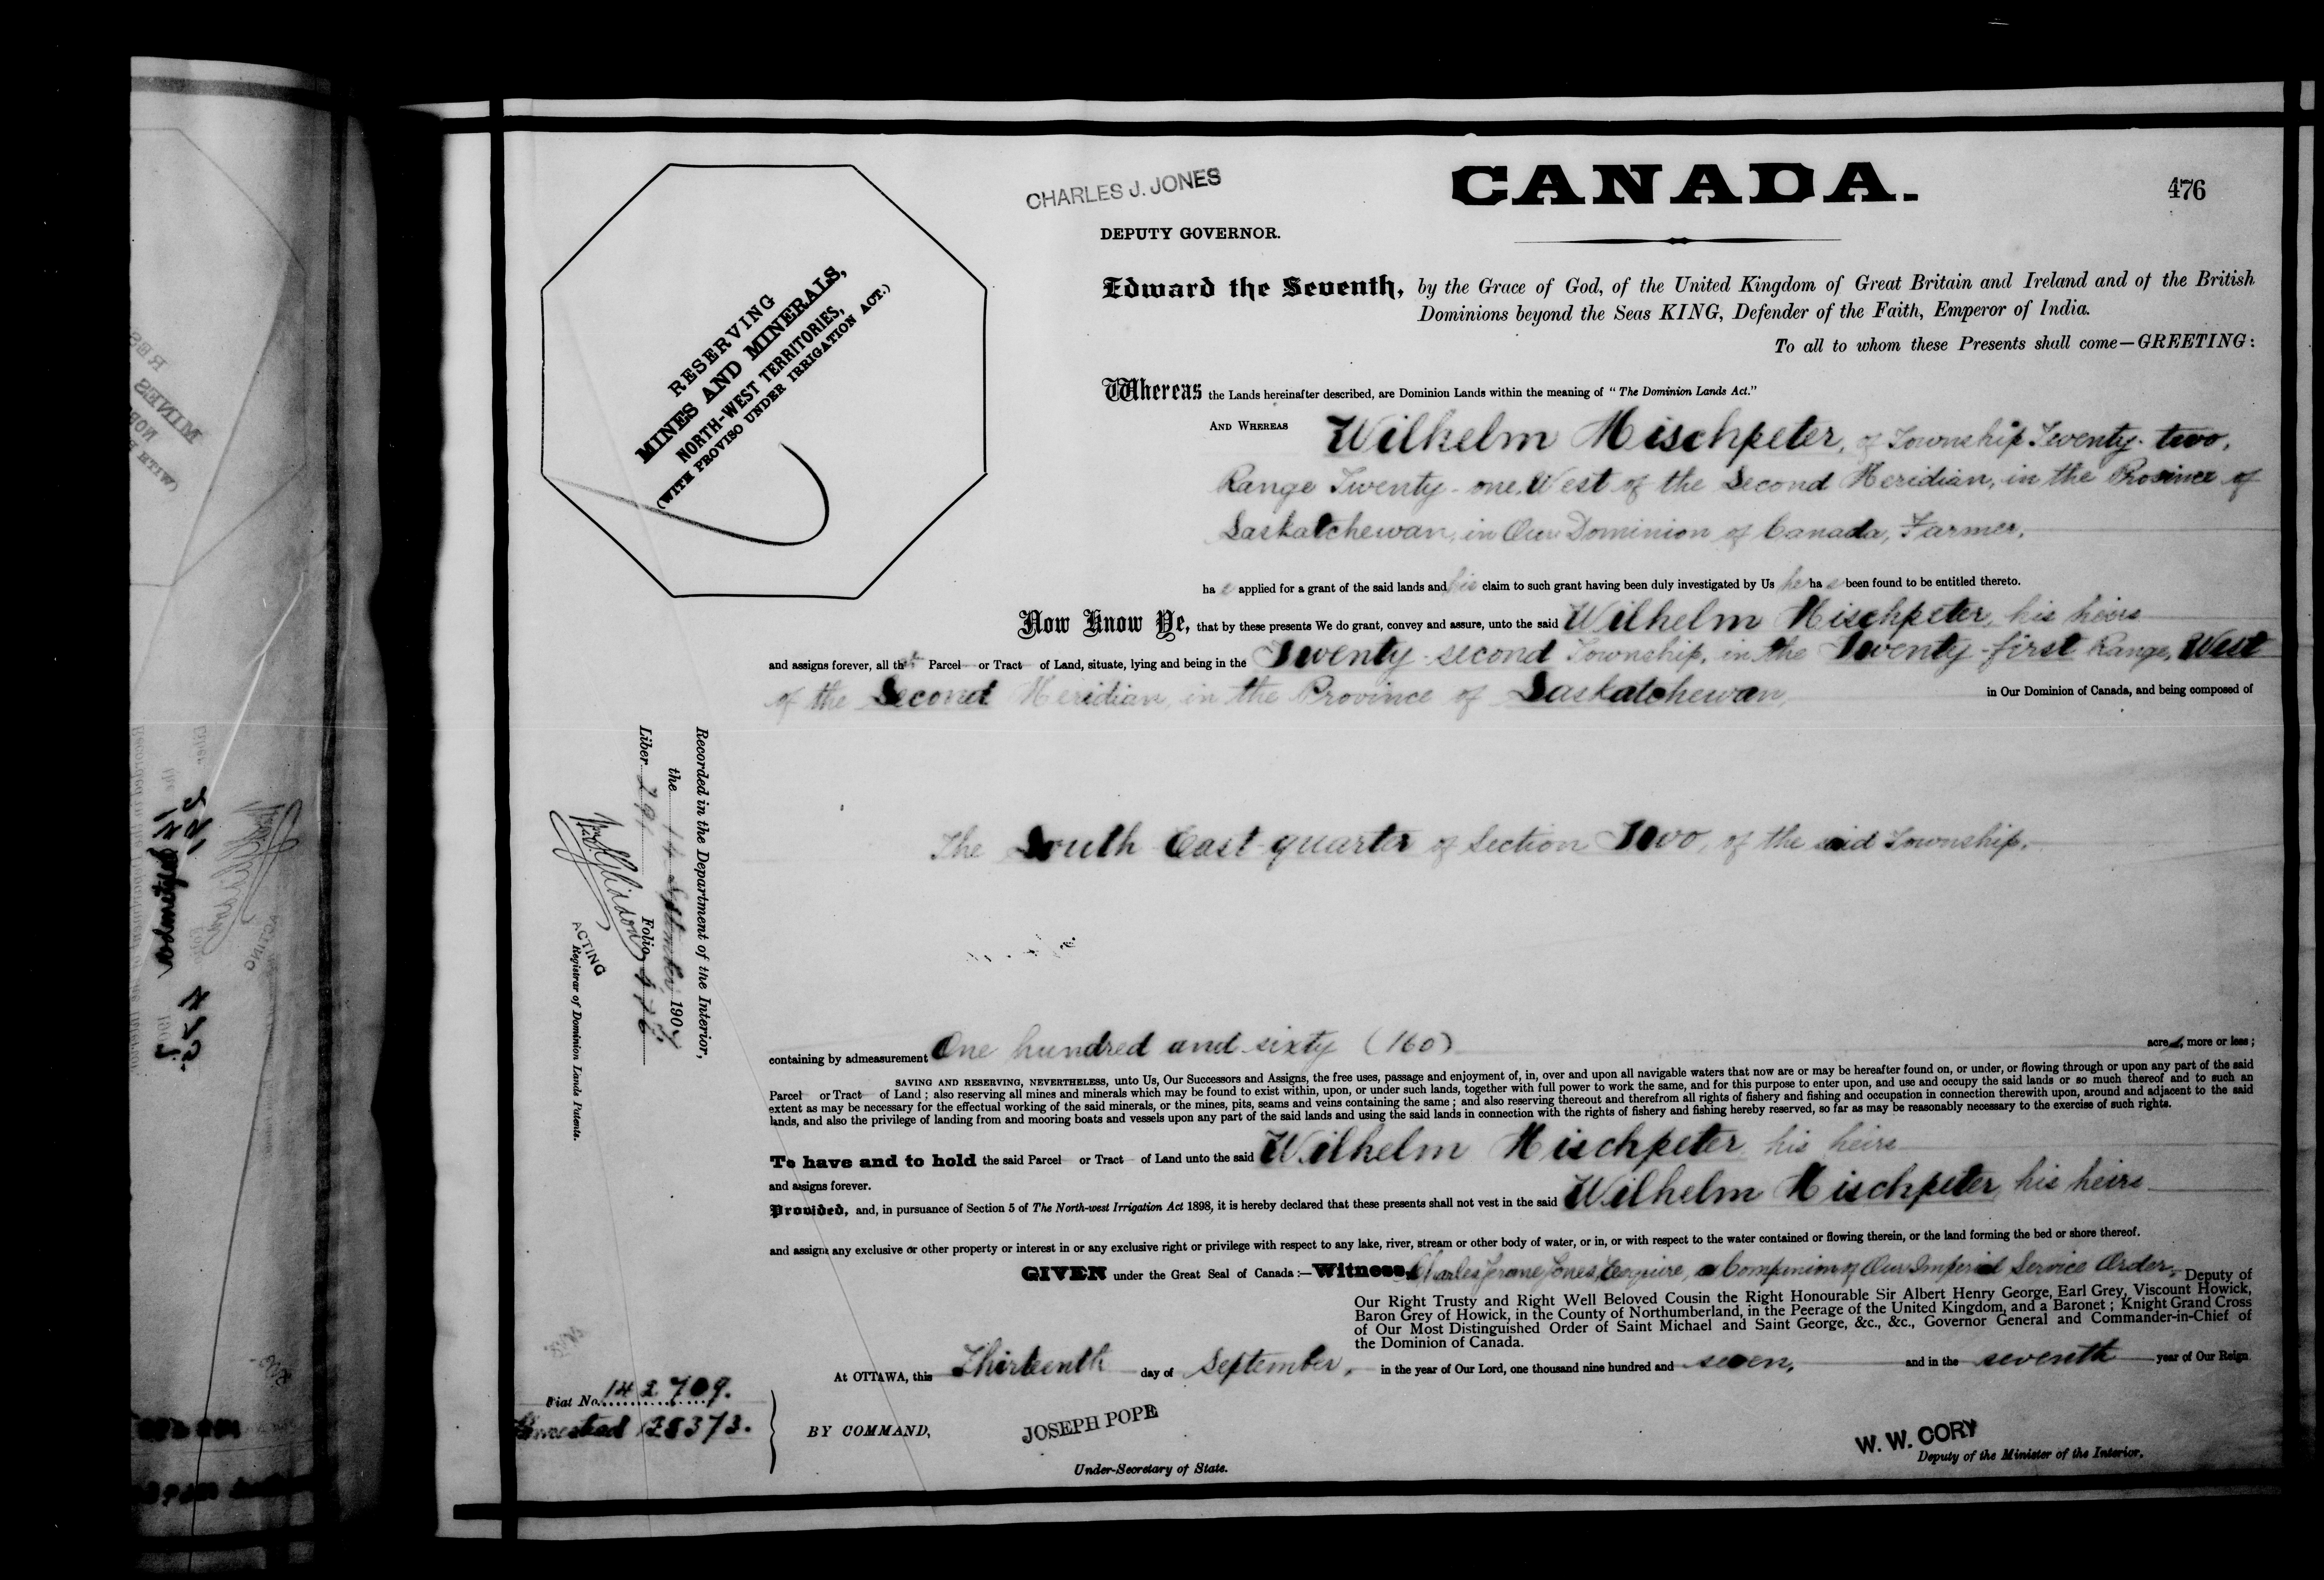 CANADA.
476
CHARLES J. JONES
DEPUTY GOVERNOR.
RESERVING
MINES AND MINERALS,
NORTH-WEST TERRITORIES,
(WITH PROVISO UNDER IRRIGATION ACT.)
Edward the Seventh, by the Grace of God, of the United Kingdom of Great Britain and Ireland and of the British
Dominions beyond the Seas KING, Defender of the Faith, Emperor of India.
To all to whom these Presents shall come—GREETING:
Whereas the Lands hereinafter described, are Dominion Lands within the meaning of "The Dominion Lands Act."
AND WHEREAS Wilhelm Mischpeter, of Township Twenty-two,
Range Twenty-one, West of the Second Meridian, in the Province of
Saskatchewan, in Our Dominion of Canada, Farmer,
has applied for a grant of the said lands and his claim to such grant having been duly investigated by Us he has been found to be entitled thereto.
Now Know Ye, that by these presents We do grant, convey and assure, unto the said Wilhelm Mischpeter, his heirs
and assigns forever, all that Parcel or Tract of Land, situate, lying and being in the Twenty-second Township, in the Twenty-first Range, West
of the Second Meridian, in the Province of Saskatchewan, in Our Dominion of Canada, and being composed of
The South East quarter of Section Two, of the said Township.
containing by admeasurement One hundred and sixty (160) acres, more or less;
SAVING AND RESERVING, NEVERTHELESS, unto Us, Our Successors and Assigns, the free uses, passage and enjoyment of, in, over and upon all navigable waters that now are or may be hereafter found on, or under, or flowing through or upon any part of the said
Parcel or Tract of Land; also reserving all mines and minerals which may be found to exist within, upon, or under such lands, together with full power to work the same, and for this purpose to enter upon, and use and occupy the said lands or so much thereof and to such an
extent as may be necessary for the effectual working of the said minerals, or the mines, pits, seams and veins containing the same; and also reserving thereout and therefrom all rights of fishery and fishing and occupation in connection therewith upon, around and adjacent to the said
lands, and also the privilege of landing from and mooring boats and vessels upon any part of the said lands and using the said lands in connection with the rights of fishery and fishing hereby reserved, so far as may be reasonably necessary to the exercise of such rights.
To have and to hold the said Parcel or Tract of Land unto the said Wilhelm Mischpeter his heirs
and assigns forever.
Provided, and, in pursuance of Section 5 of The North-west Irrigation Act 1898, it is hereby declared that these presents shall not vest in the said Wilhelm Mischpeter, his heirs
and assigns any exclusive or other property or interest in or any exclusive right or privilege with respect to any lake, river, stream or other body of water, or in, or with respect to the water contained or flowing therein, or the land forming the bed or shore thereof.
GIVEN under the Great Seal of Canada:—Witness, Charles Jerome Jones, Esquire, a Companion of Our Imperial Service Order, Deputy of
Our Right Trusty and Right Well Beloved Cousin the Right Honourable Sir Albert Henry George, Earl Grey, Viscount Howick,
Baron Grey of Howick, in the County of Northumberland, in the Peerage of the United Kingdom, and a Baronet; Knight Grand Cross
of Our Most Distinguished Order of Saint Michael and Saint George, &c., &c., Governor General and Commander-in-Chief of
the Dominion of Canada.
At OTTAWA, this Thirteenth day of September, in the year of Our Lord, one thousand nine hundred and seven, and in the seventh year of Our Reign
BY COMMAND,
JOSEPH POPE
Under-Secretary of State.
W. W. CORY
Deputy of the Minister of the Interior.
Fiat No. 142709.
Homestead 128373.
Recorded in the Department of the Interior,
the 14 September 1907
Liber 291 Folio 476
ACTING
Registrar of Dominion Lands Patents.